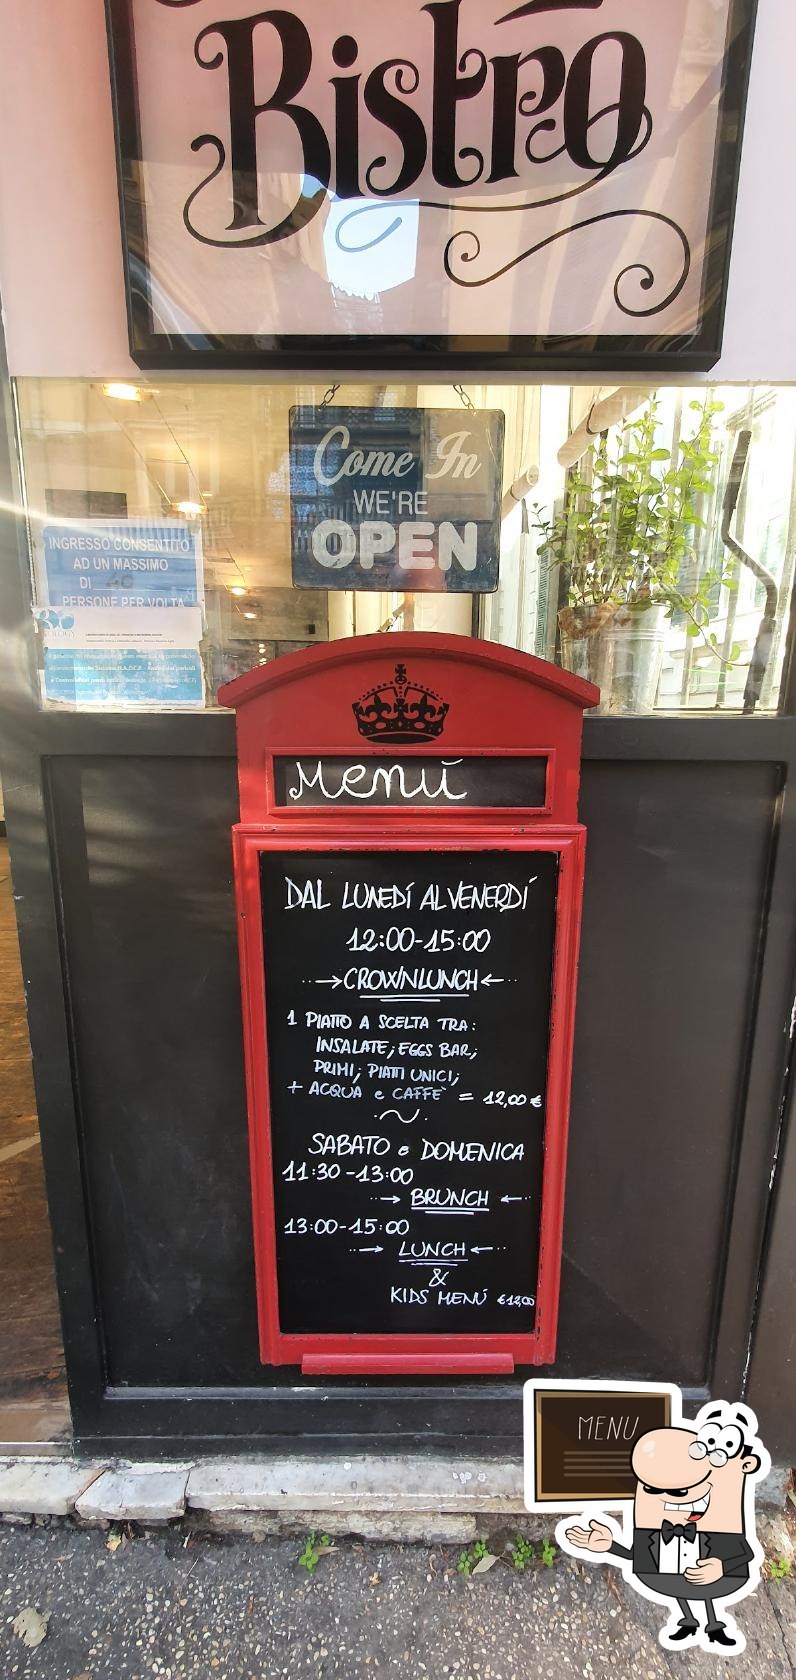 Bistrō
Come In
WE'RE
OPEN
INGRESSO CONSENTITO
AD UN MASSIMO
DI
PERSONE PER VOLTA
Menú
DAL LUNEDÍ AL VENERDÍ
12:00-15:00
CROWNLUNCH
1 PIATTO A SCELTA TRA:
INSALATE; EGGS BAR;
PRIMI; PIATTI UNICI;
+ ACQUA e CAFFÈ = 12,00 €
SABATO e DOMENICA
11:30-13:00
BRUNCH
13:00-15:00
LUNCH
&
KIDS MENÚ €12,00
MENU